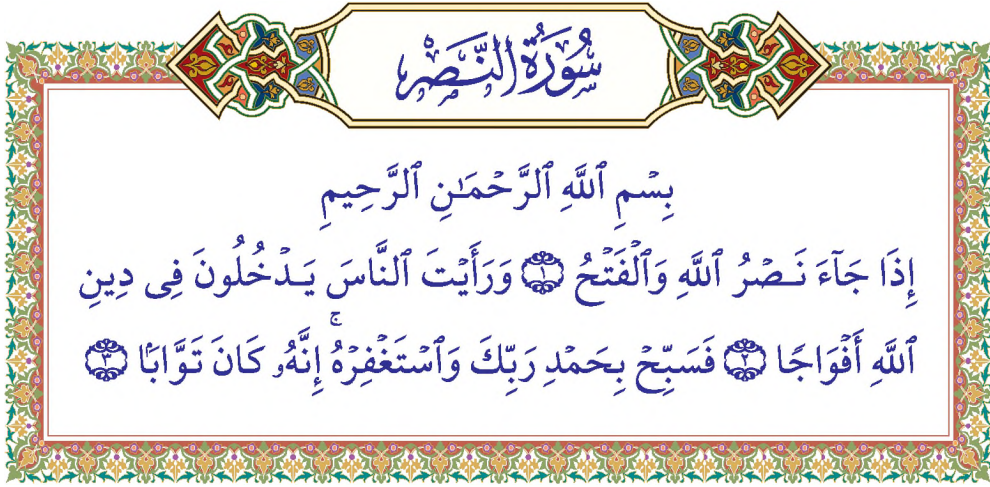 سُورَةُ النَّصْرِ
بِسْمِ ٱللَّهِ ٱلرَّحْمَـٰنِ ٱلرَّحِيمِ
إِذَا جَآءَ نَـصْرُ ٱللَّهِ وَٱلْفَتْحُ ﴿١﴾ وَرَأَيْتَ ٱلنَّاسَ يَـدْخُلُونَ فِى دِينِ
ٱللَّهِ أَفْوَاجًا ﴿٢﴾ فَسَبِّحْ بِحَمْدِ رَبِّكَ وَٱسْتَغْفِرْهُ ۚ إِنَّهُۥ كَانَ تَوَّابًۢا ﴿٣﴾